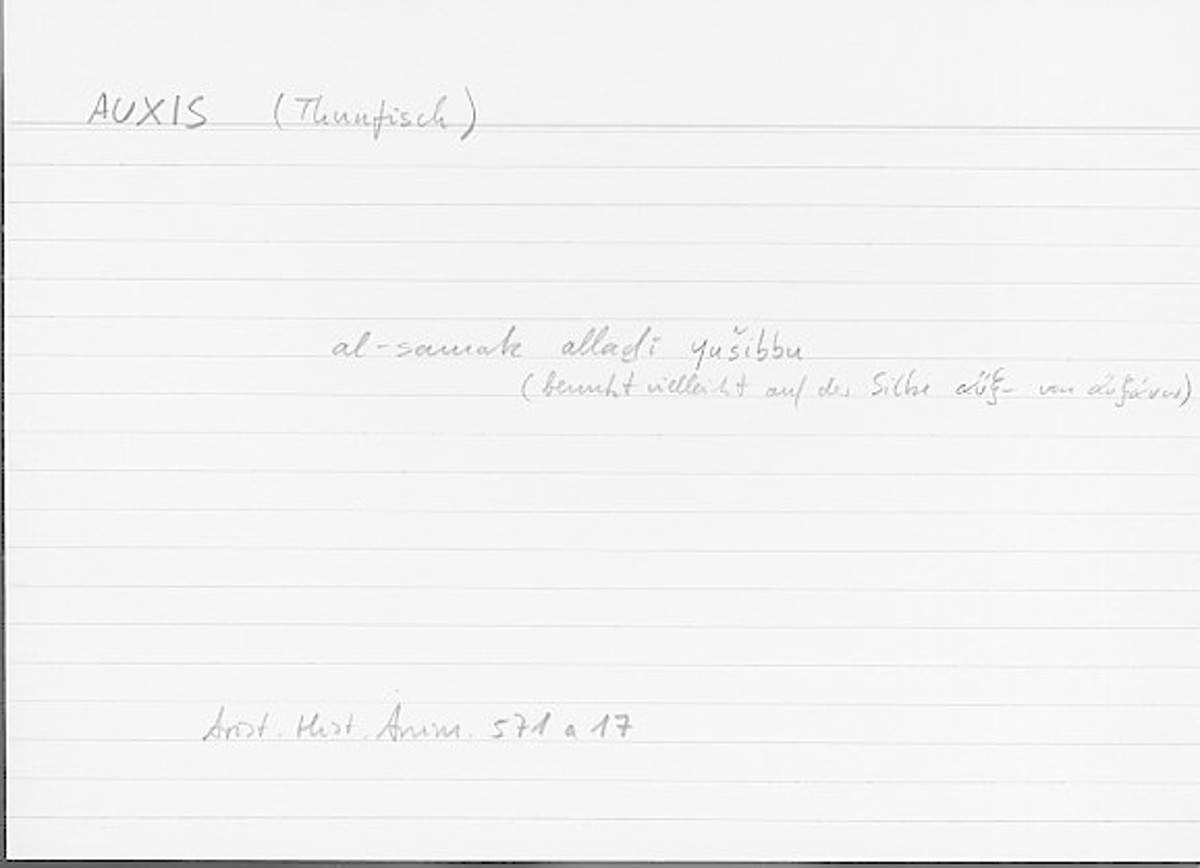 AUXIS (Thunfisch)
al-samak alladi yušibbu
(beruht vielleicht auf der Silbe αὔξ- von αὐξάνω)
Arist. Hist. Anim. 571 a 17